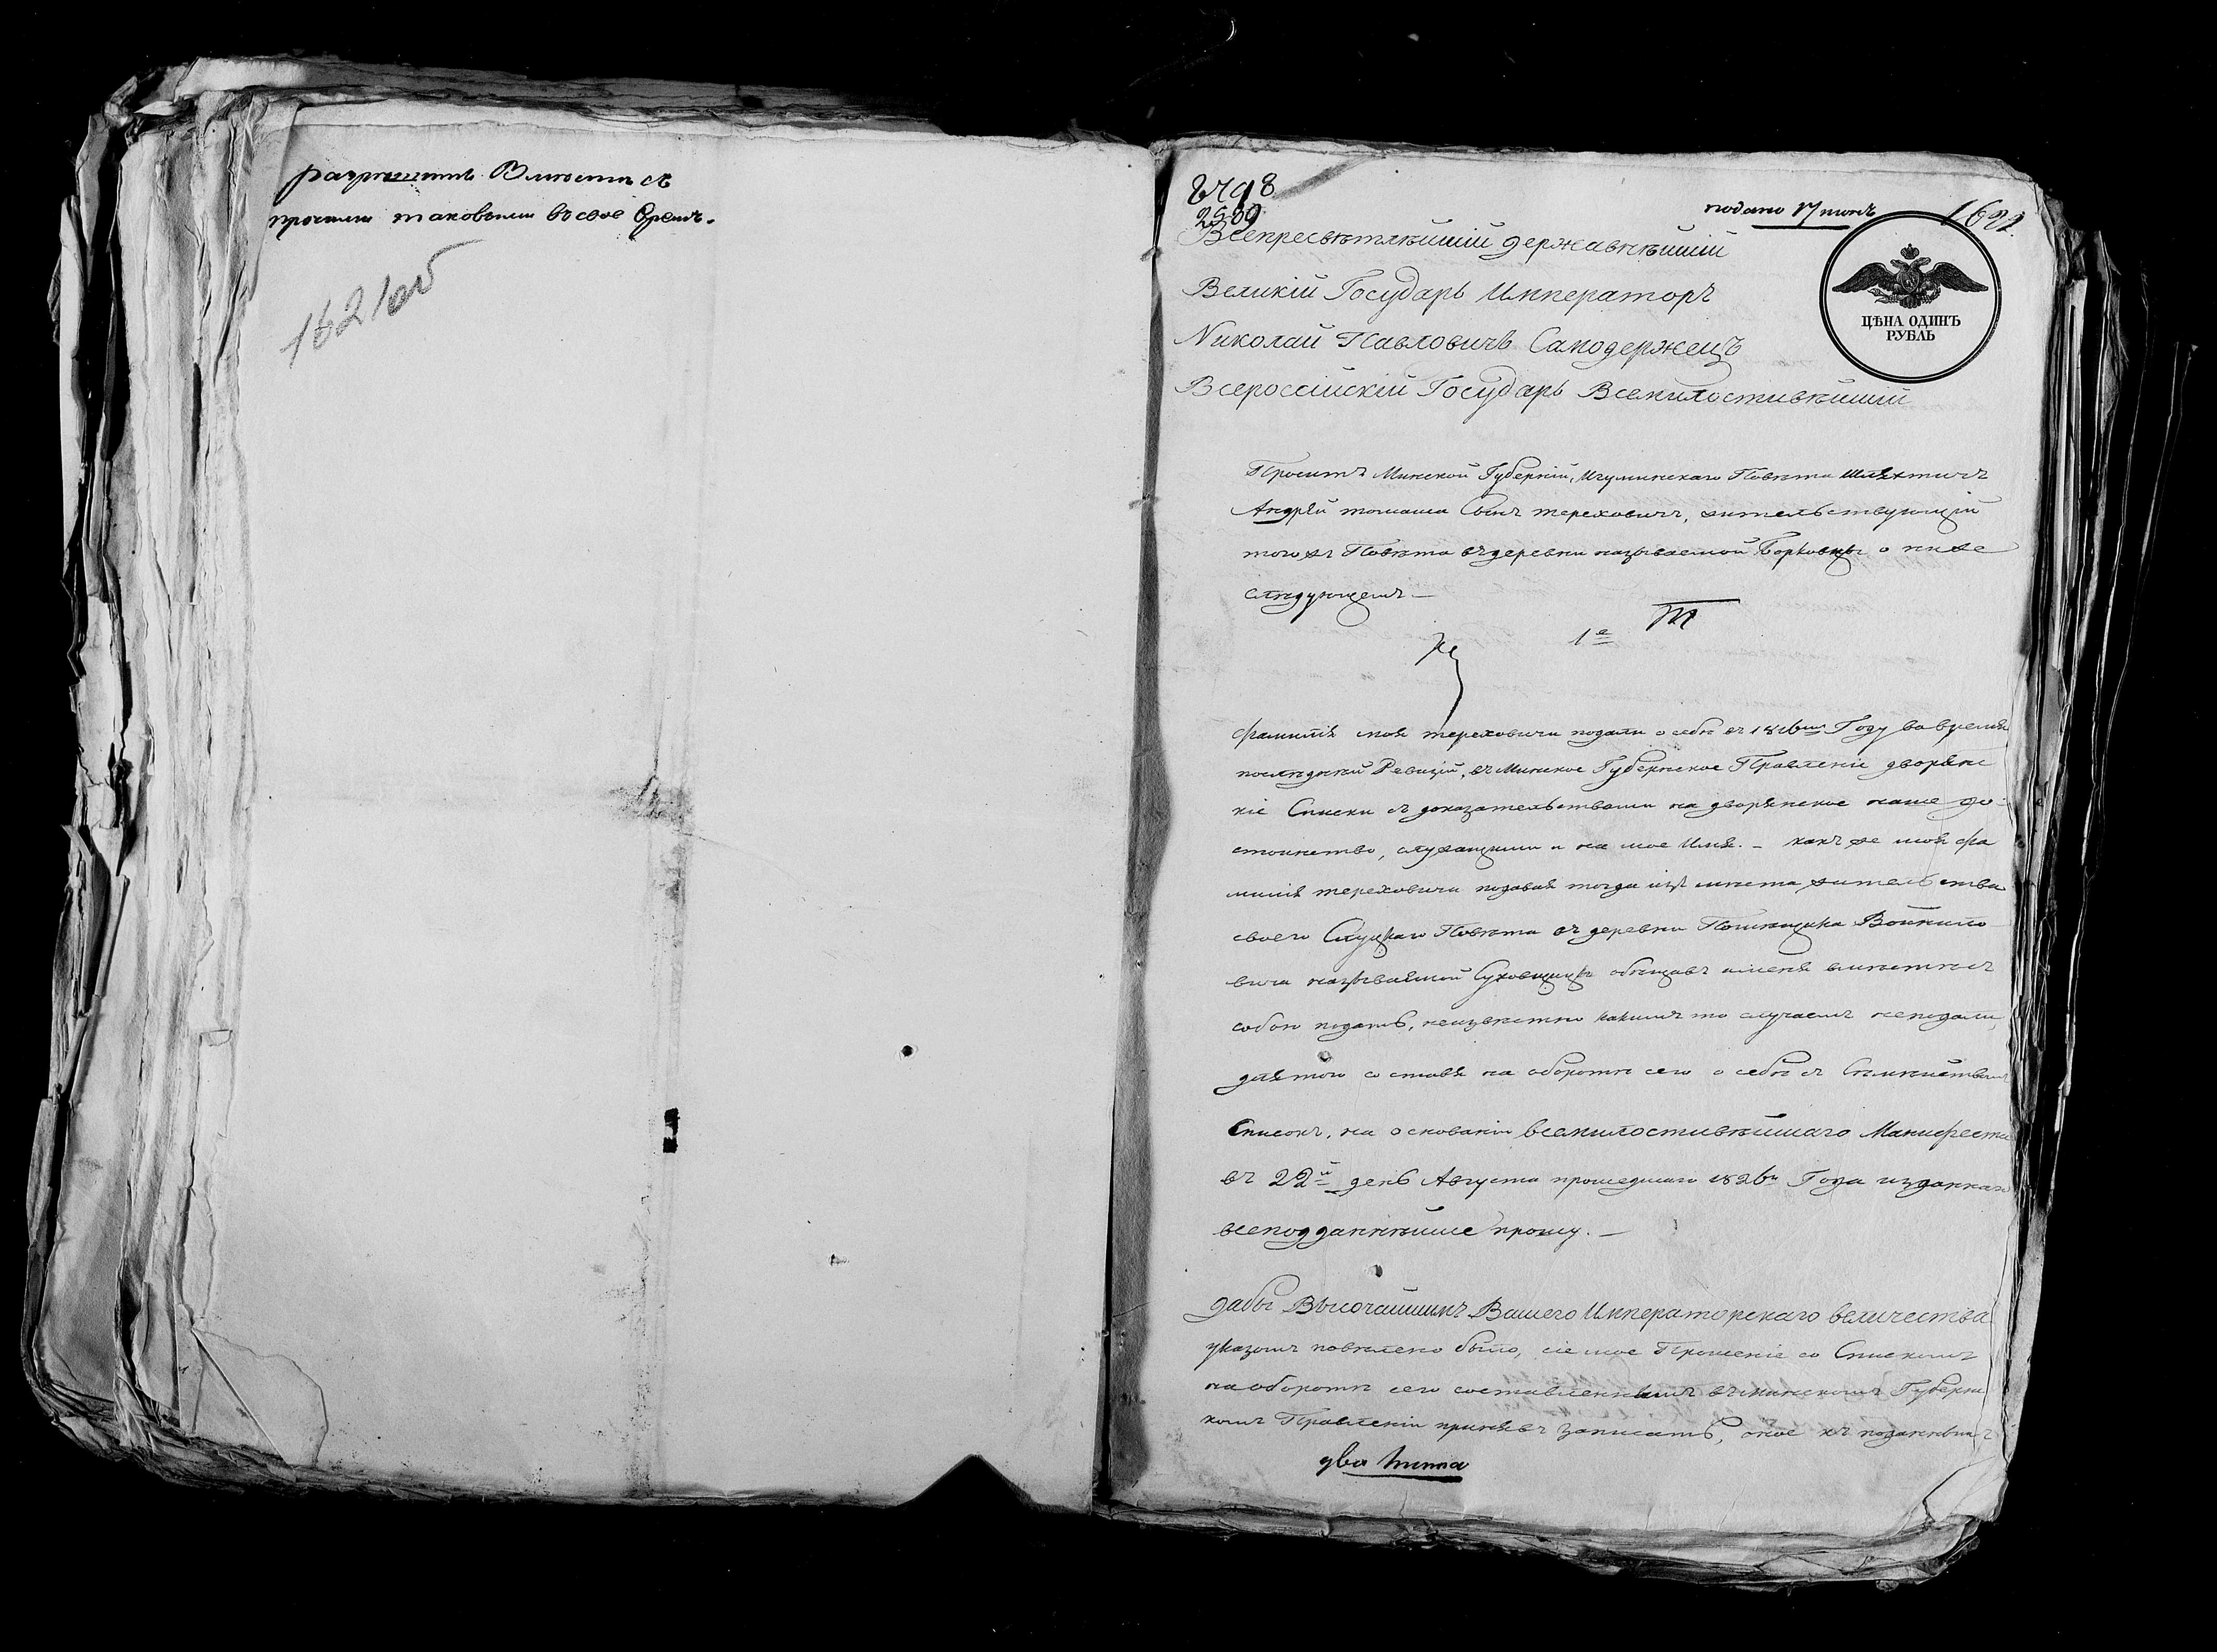 разрешить Вместе съ
прочими таковыми въ свое время.
1621 об
8498
2509
подано 17 июнь
1622
Всепресвѣтлѣйшій державнѣйшій
Великій Государь Императоръ
Николай Павловичъ Самодержецъ
Всероссійскій Государь Всемилостивѣйшій
ЦѢНА ОДИНЪ
РУБЛЬ
Проситъ Минской Губерніи, Игуминскаго Повѣта шляхтичъ
Андрей томаша Сынъ тереховичъ, жительствующій
того жъ Повѣта въ деревни называемой Борковцы о ниже
слѣдующемъ —
1е
фамилія моя тереховичи подали о себѣ въ 1816мъ Году во время
послѣдней Ревизіи, въ Минское Губернское Правленіе дворянс
кіе Списки съ доказательствами на дворянское наше до-
стоинство, служащими и на мое Имя. – какъ же моя фа
милія тереховичи подавая тогда изъ мѣста жительства
своего Слуцкаго Повѣта въ деревни Помѣщика Войнило
вича называемой обѣщавъ именя вмѣстѣ съ
собою подать, неизвѣстно какимъ то случаемъ неподали,
для того составя на оборотѣ сего о себѣ съ Сѣмействомъ
Списокъ, на основаніи всемилостивѣйшаго Манифеста
въ 22й день Августа прошедшаго 1826го Года изданнаго
всеподданнѣйше прошу. —
дабы Высочайшимъ Вашего Императорскаго величества
указомъ повелено было, сіе мое Прошеніе со Спискомъ
на оборотѣ сего составленнымъ въ минскомъ Губернс
комъ Правленіи принявъ записать, оное къ поданнымъ
два листа